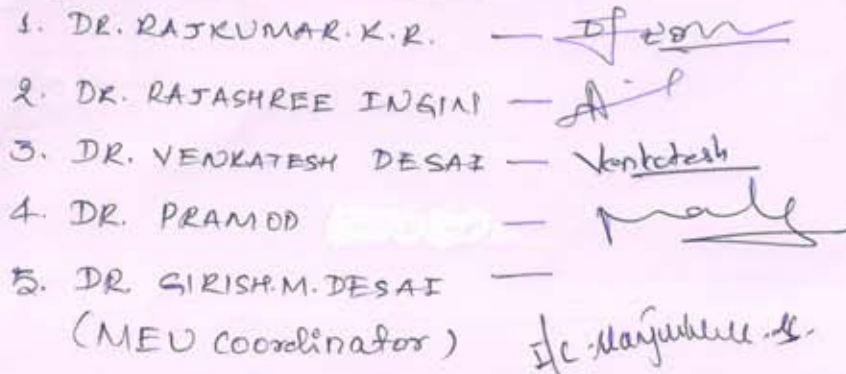 1. DR. RAJKUMAR. K. R. —
2. DR. RAJASHREE INGINI —
3. DR. VENKATESH DESAI — Venkatesh
4. DR. PRAMOD —
5. DR GIRISH. M. DESAI —
(MEU Coordinator) I/c